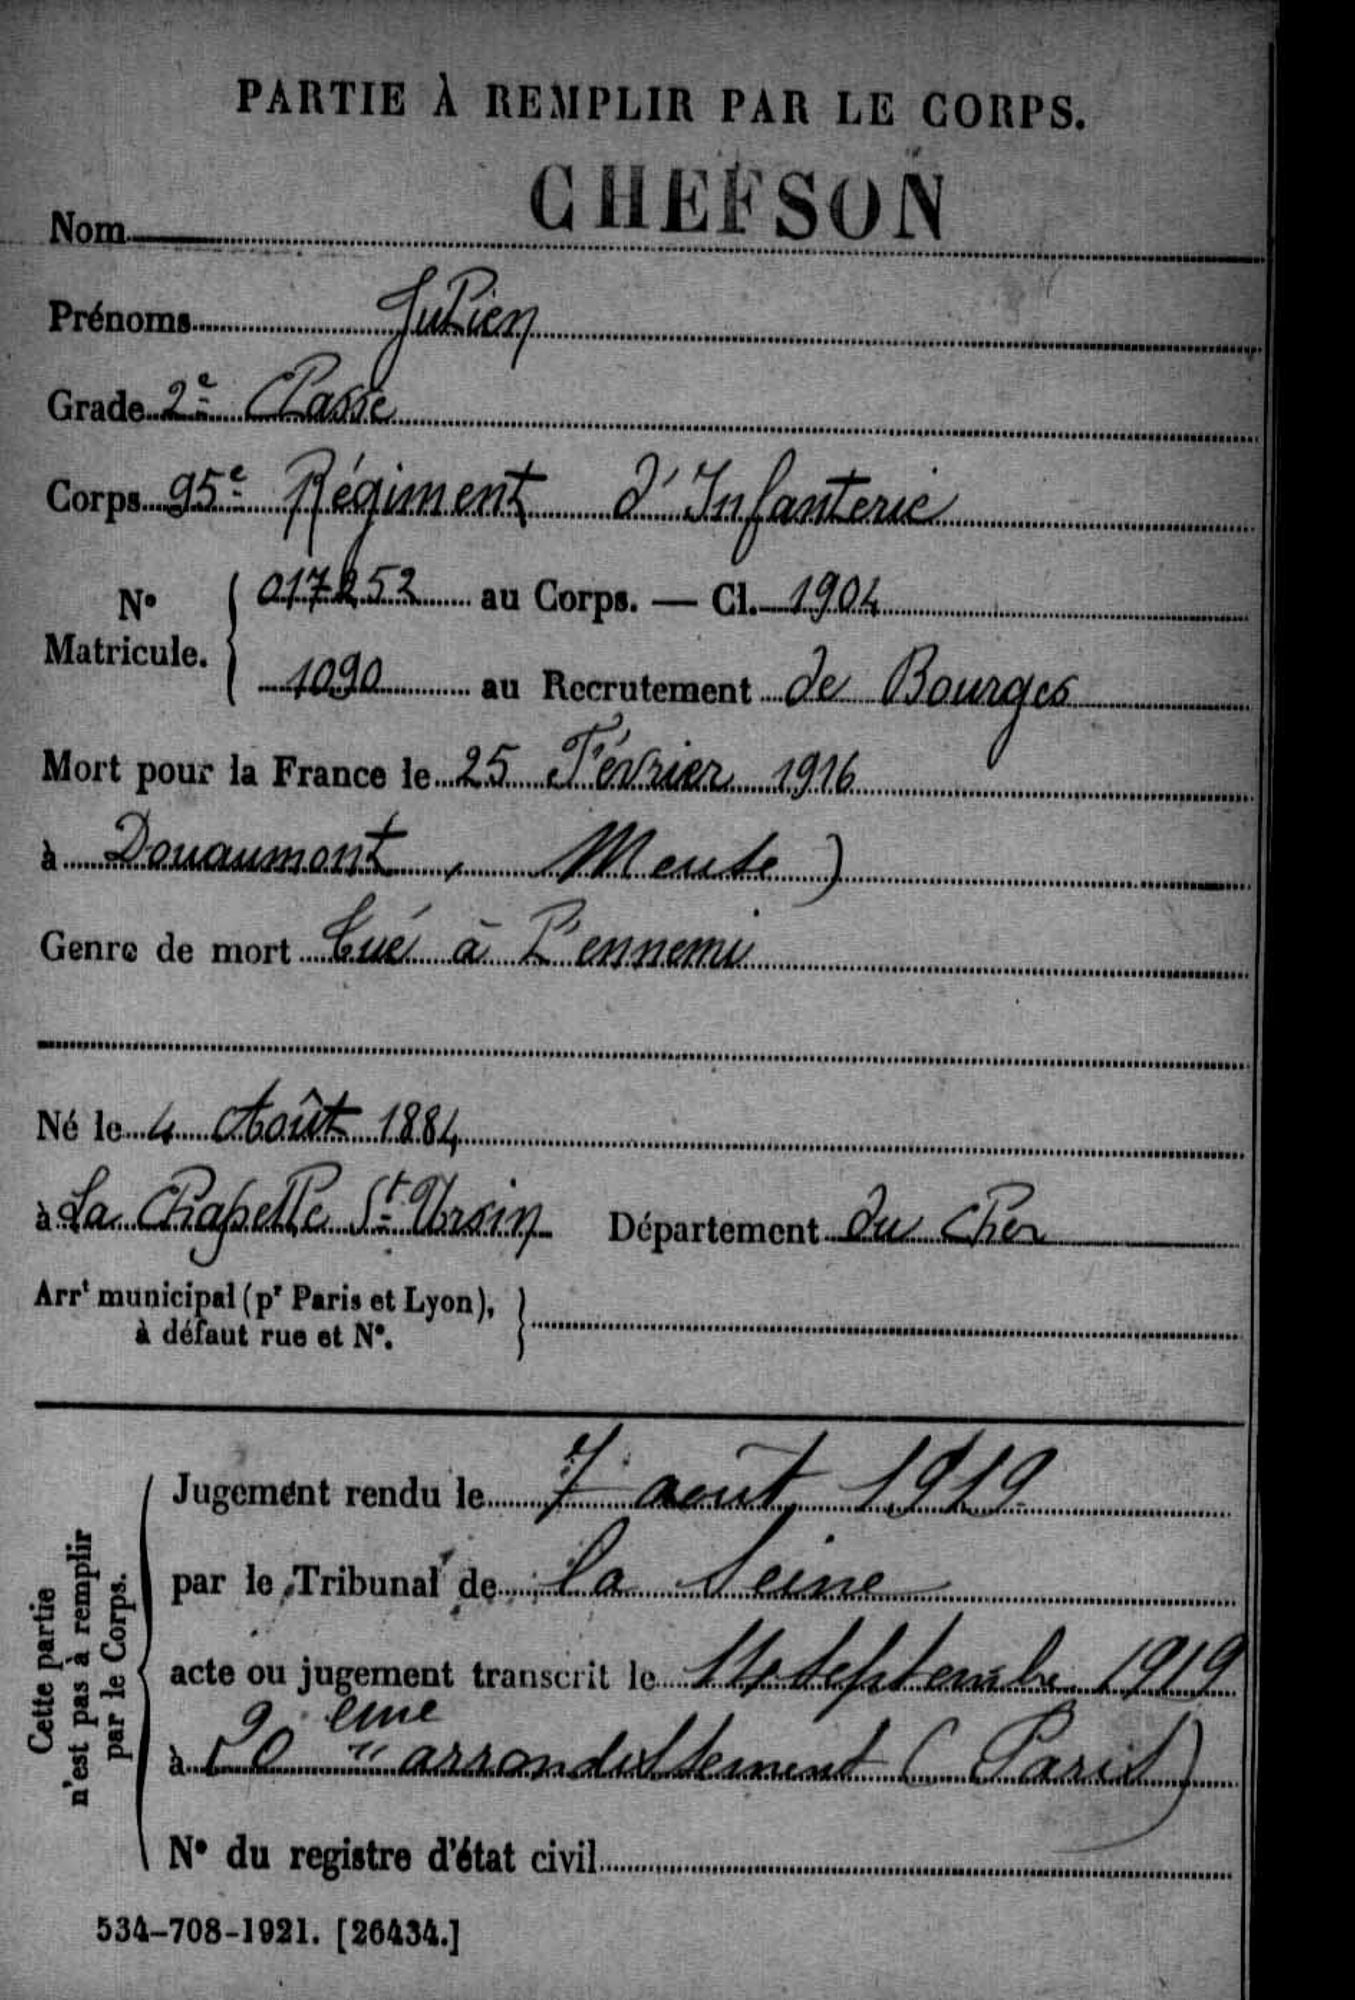 PARTIE À REMPLIR PAR LE CORPS.
Nom CHEFSON
Prénoms Julien
Grade 2e Classe
Corps 95e Régiment d'Infanterie
N° Matricule. { 017252 au Corps. — Cl. 1904
1090 au Recrutement de Bourges
Mort pour la France le 25 Février 1916
à Douaumont, Meuse)
Genre de mort Tué à l'ennemi
Né le 4 Août 1884
à La Chapelle St Ursin Département du Cher
Arrt municipal (pr Paris et Lyon), }
à défaut rue et N°.
Cette partie
n'est pas à remplir
par le Corps.
Jugement rendu le 7 août 1919
par le Tribunal de la Seine
acte ou jugement transcrit le septembre 1919
à 20 eme arrondissement (Paris)
N° du registre d'état civil
534-708-1921. [26434.]